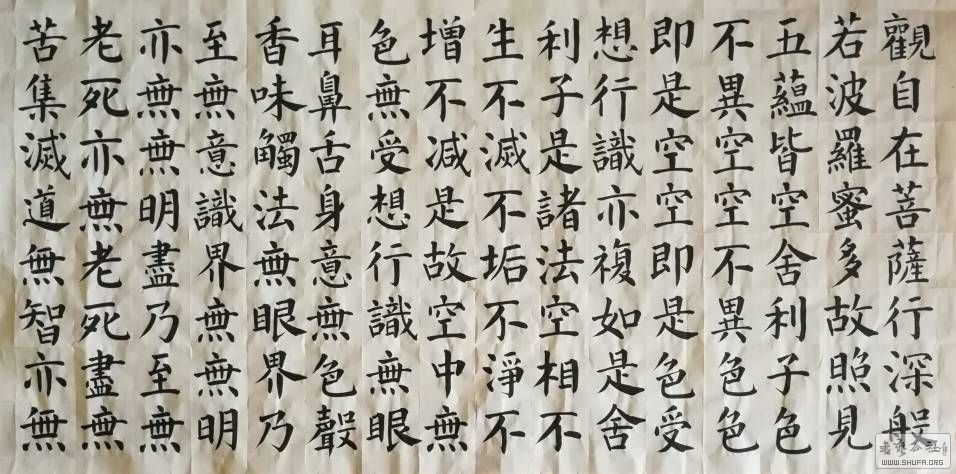 觀自在菩薩行深般
若波羅蜜多故照見
五蘊皆空舍利子色
不異空空不異色色
即是空空即是色受
想行識亦複如是舍
利子是諸法空相不
生不滅不垢不淨不
增不减是故空中無
色無受想行識無眼
耳鼻舌身意無色聲
香味觸法無眼界乃
至無意識界無無明
亦無無明盡乃至無
老死亦無老死盡無
苦集滅道無智亦無
WWW.SHUFA.ORG